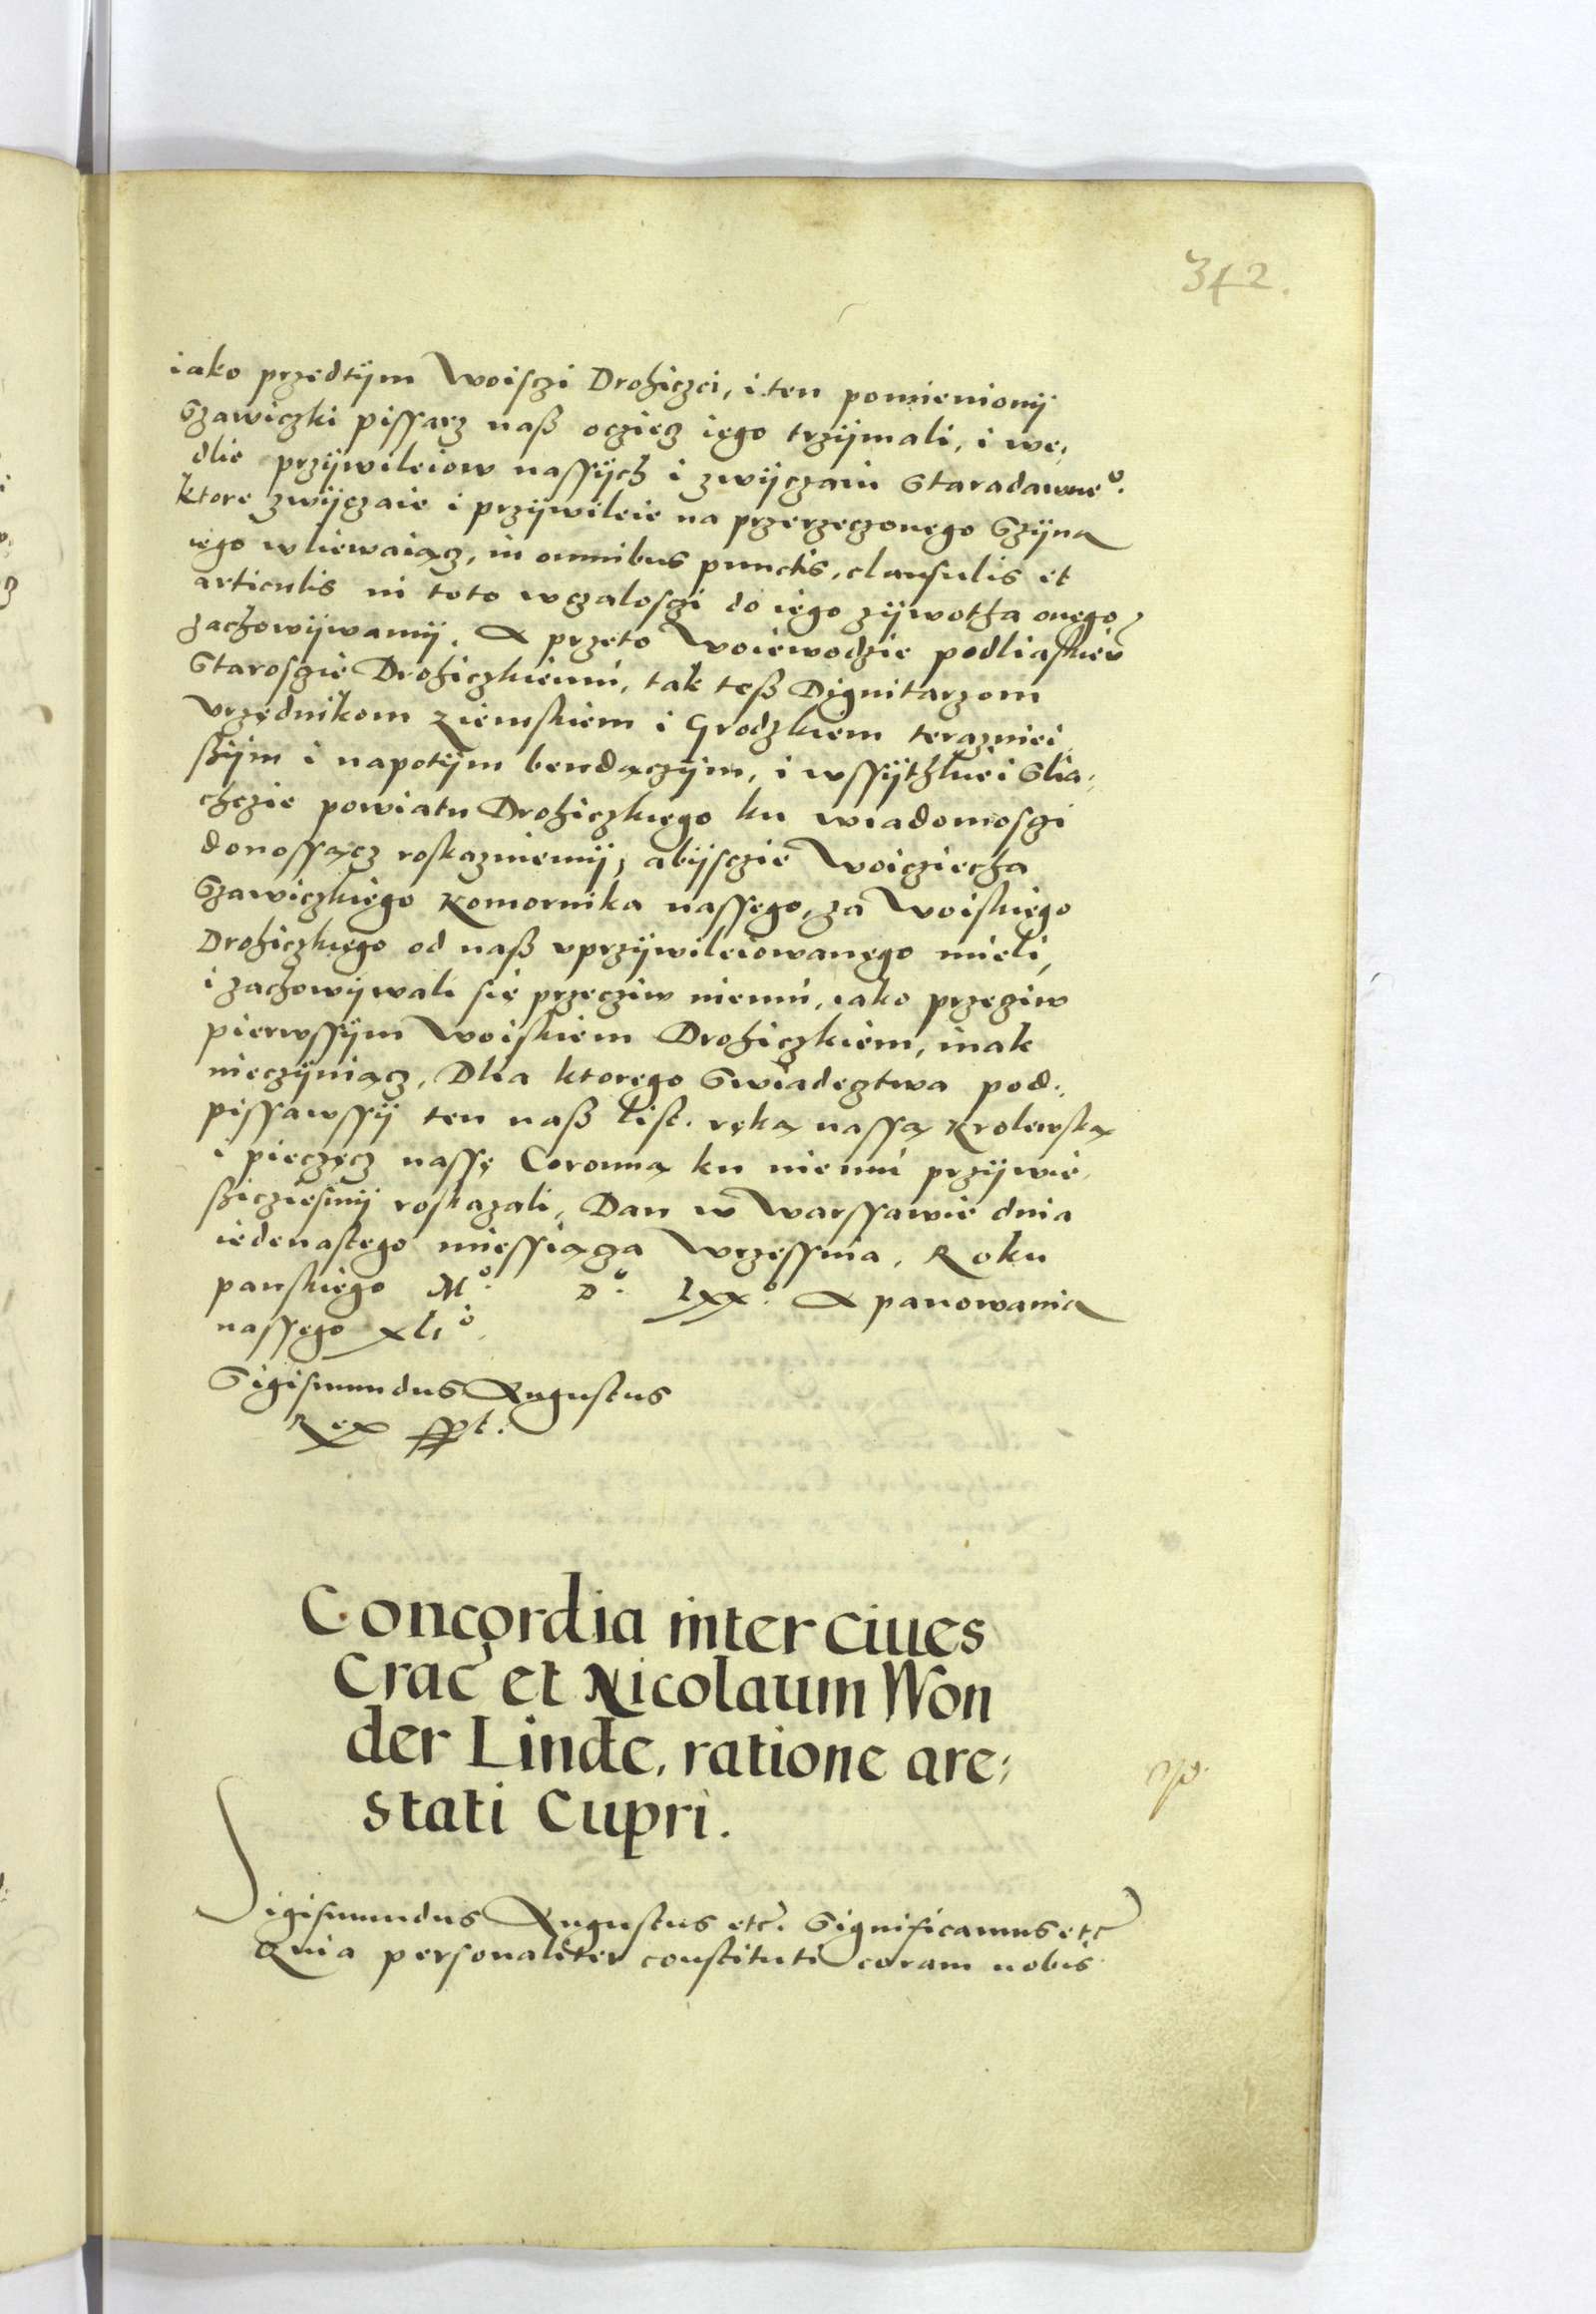 342.
iako przedtÿm Woisczi Drohiczci, i ten pomienionÿ
Szawiczki pissarz naß ocziecz iego trzÿmali, i we,
dlie przÿwileiow nassÿch i zwÿczaiu Staradawne°.
ktore zwÿczaie i przÿwileie na przerzeczonego Szÿna
iego wliewaiącz, in omnibus punctis, clausulis et
articulis in toto wczalosczi do iego zÿwotha onego
zachowÿwamÿ. A przeto Woiewodzie podliaskieu
Starosczie Drohiczkiemu, tak teß Dignitarzom
Vrzędnikom Ziemskiem i Grodzkiem terazniei
ßÿm i napotÿm bendączÿm, i wssÿthkiei Slia,
chczie powiatu Drohiczkiego ku wiadomosczi
donossącz roskazuiemÿ, abÿsczie Woicziecha
Szawiczkiego Komornika nassego, za Woiskiego
Drohiczkiego od naß vprzÿwileiowanego mieli,
i zachowÿwali się przecziw niemu, iako przeciw
pierwssÿm Woiskiem Drohiczkiem, inak
nieczÿniącz, Dlia ktorego Swiadecztwa pod,
pissawssÿ ten naß list. ręką nassą Krolewską
i pieczęcz nassę Coronną ku niemu przÿwie,
ßicziesmÿ roskazali, Dan w Warssawie dnia
iedenastego miessiącza Wrzessnia, Roku
panskiego M°. D°. Lxx°. A panowania
nassego xli°.
Sigismundus Augustus
Rex sspt.
Concordia inter ciues
Crac̃ et Nicolaum Won
der Linde, ratione are,
stati Cupri.
Sigismundus Augustus etc̃. Significamus etc̃
Quia personaliter constituti coram nobis